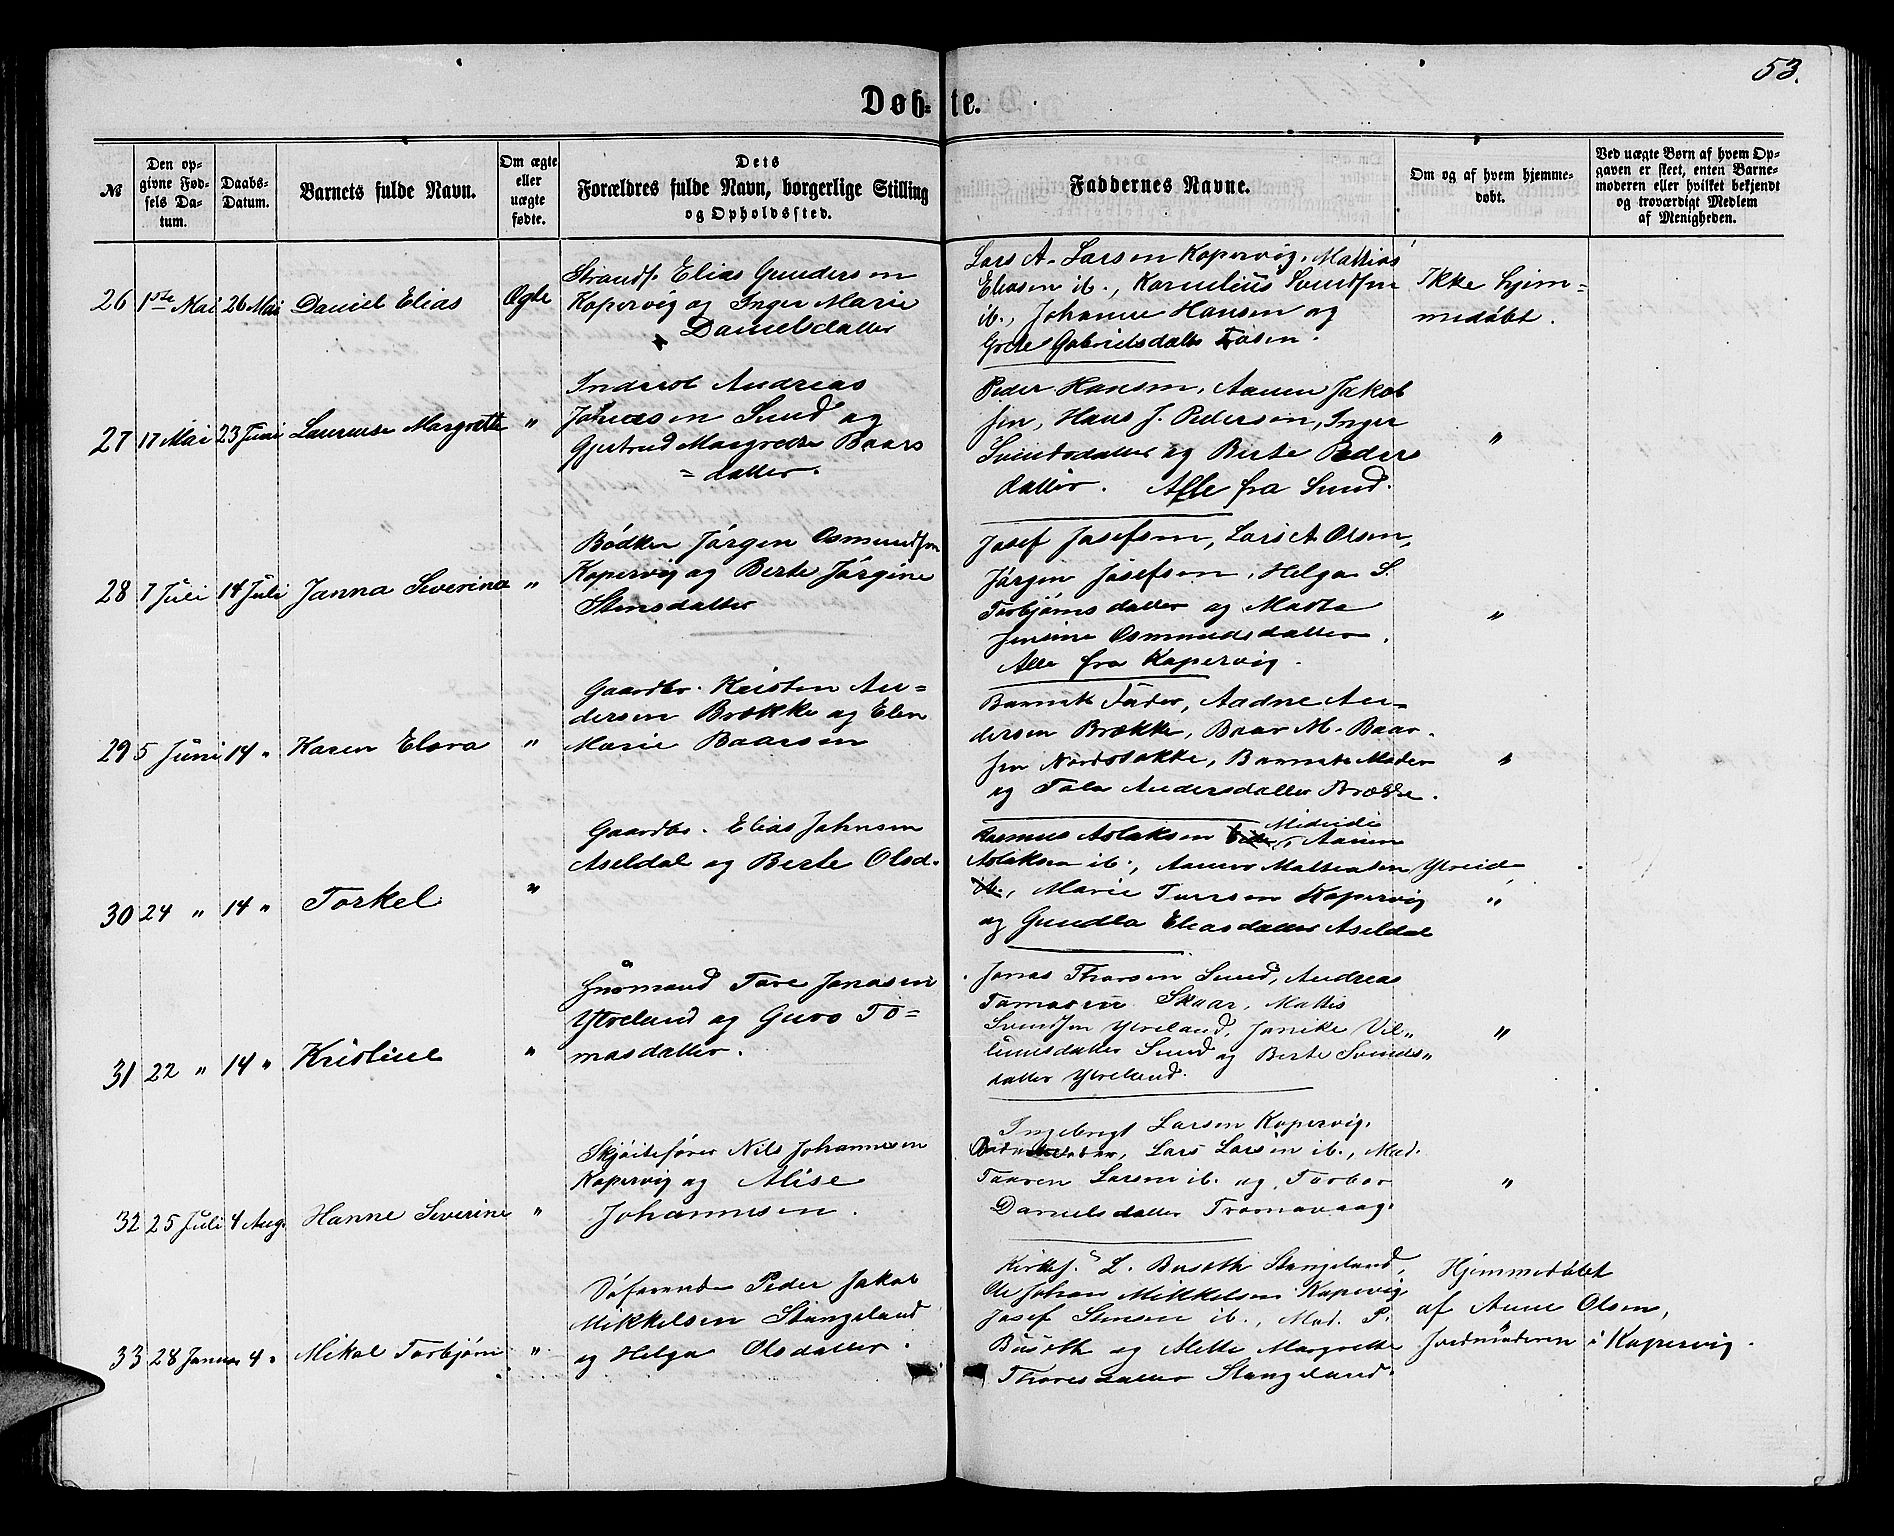 53.
Døbte.
№
Den opgivne Fødsels Datum.
Daabs-Datum.
Barnets fulde Navn.
Om ægte eller uægte fødte.
Dets Forældres fulde Navn, borgerlige Stilling og Opholdssted.
Faddernes Navne.
Om og af hvem hjemmedøbt.
Ved uægte Børn af hvem Opgaven er skeet, enten Barnemoderen eller hvilket bekjendt og troværdigt Medlem af Menigheden.
26 1ste Mai 26 Mai Daniel Elias Ægte
Strandf. Elias Gundersen
Kopervig og Inger Marie
Danielsdatter
Lars A. Larsen Kopervig, Mattias
Eliasen ib., Kornelius Svendsen
ib., Johanne Hansen og
Grete Gabrielsdatter Tøsen.
Ikke hjem=
medøbt.
27 17 Mai 23 Juni Laurense Margrette "
Inderst Andreas
Johnsen Sund og
Gjertrud Margrethe Baars
=datter.
Peder Hansen, Aanen Jakob
sen, Hans J. Pedersen, Inger
Svendsdatter og Berte Peders
datter. Alle fra Sund.
"
28 7 Juli 14 Juli Janna Severine "
Bødker Jørgen Osmundsen
Kopervig og Berte Jørgine
Stensdatter
Josef Josefsen, Lars A Olsen,
Jørgen Josefsen, Helga S.
Torbjørnsdatter og Marta
Jensine Osmundsdatter.
Alle fra Kopervig.
"
29 5 Juni 14 " Karen Elora "
Gaardbr. Kristen An=
dersen Brekke og Elen
Marie Baarsen
Barnets Fader, Aadne An=
dersen Brække, Baar M. Baar
sen Nordstokke, Barnets Moder
og Tala Andersdatter Brække.
"
30 24 " 14 " Torkel "
Gaardbr. Elias Johnsen
Aseldal og Berte Olsd.
Midveide
Rasmus Aslaksen, Aanen
Aslaksen ib., Aanen Mattiasen Ytreide
ib., Marie Tuesen Kopervig
og Gundla Eliasdatter Aseldal
"
31 22 " 14 " Kristine "
Huusmand Tore Jonasen
Ytreland og Guro To=
masdatter.
Jonas Thorsen Sund, Andreas
Tomasen Skaar, Mattis
Svendsen Ytreland, Janike Vil=
lumsdatter Sund og Berte Svends=
datter Ytreland.
"
32 25 Juli 4 Aug. Hanne Severine "
Skjøitefører Nils Johannesen
Kopervig og Alise
Johannesen.
Ingebregt Larsen Kopervig.
Lars Larsen ib., Mad.
Taaren Larsen ib. og Torbor
Danielsdatter Tromøvaag.
"
33 28 Januar 4 " Mikal Torbjørn "
Søfarende Peder Jakob
Mikkelsen Stangeland
og Helga Olsdatter.
Kirks. L. Buseth Stangeland,
Ole Johan Mikkelsen Kopervig
Josef Stensen ib., Mad. P.
Buseth og Mette Margrette
Thoresdatter Stangeland.
Hjemmedøbt
af Anne Olsen,
Jordmoderen i Kopervig.